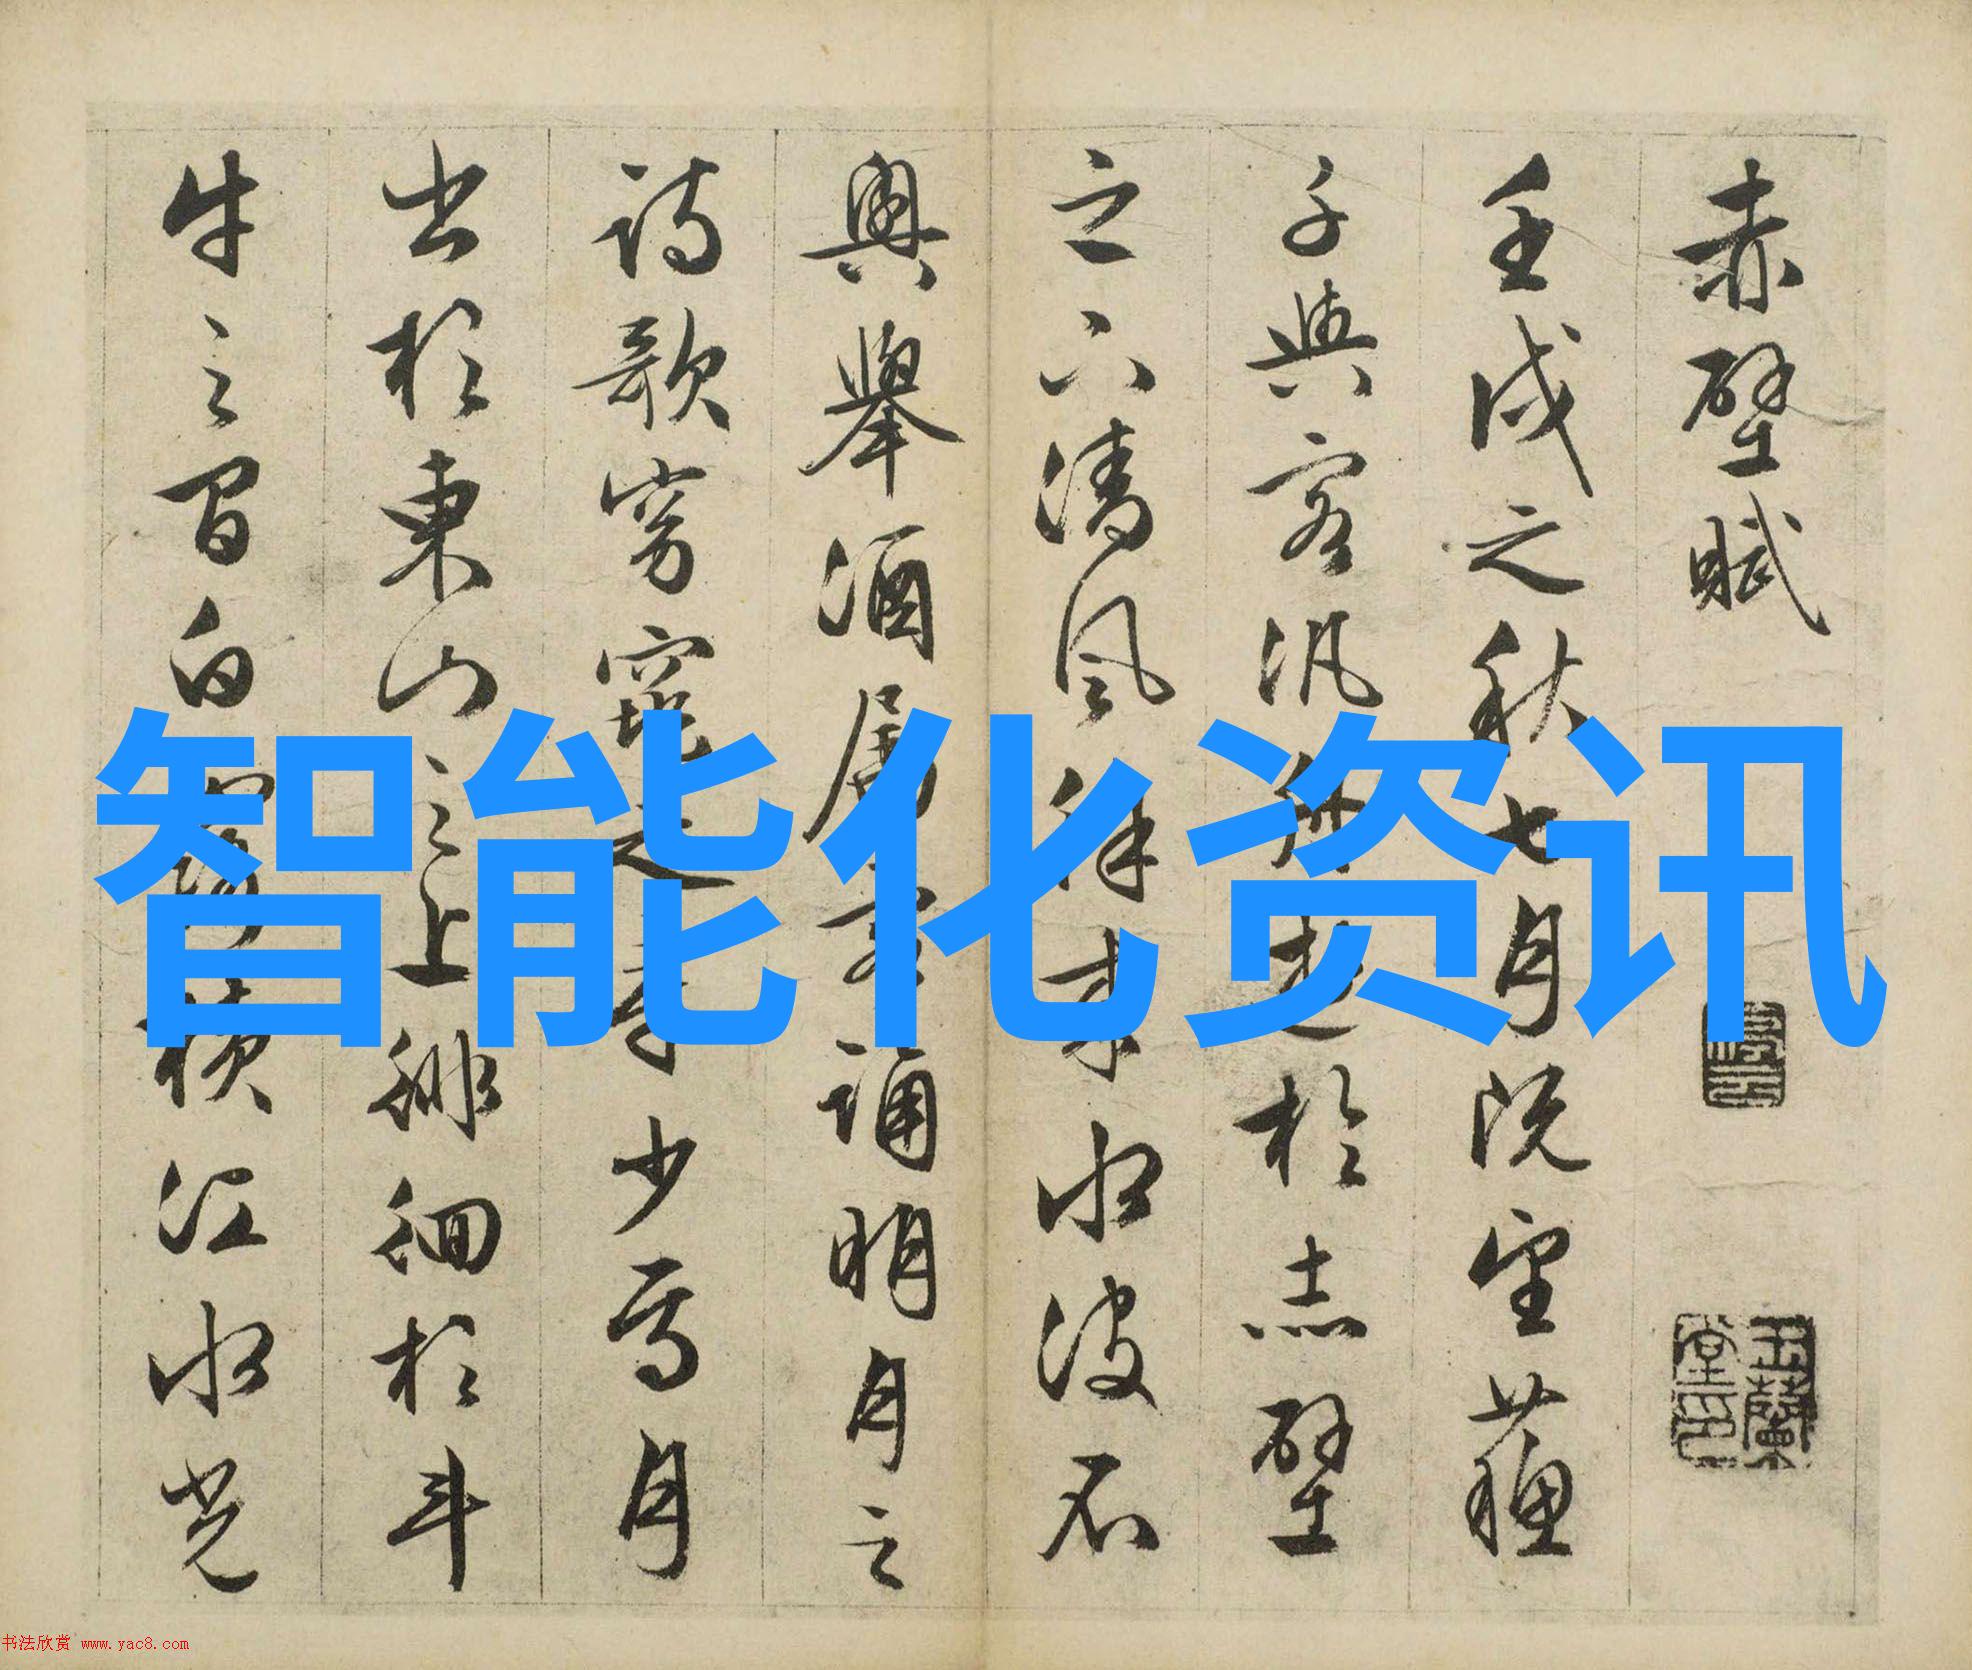 赤壁賦
壬戌之秋七月既望蘓
子與客汎舟遊於赤壁
之下清風徐来水波不
興舉酒屬客誦明月之
詩歌窈窕之章少焉月
出於東山之上徘徊於斗
牛之間白露橫江水光
智能化资讯
玉蘭堂印
书法欣赏 www.yac8.com